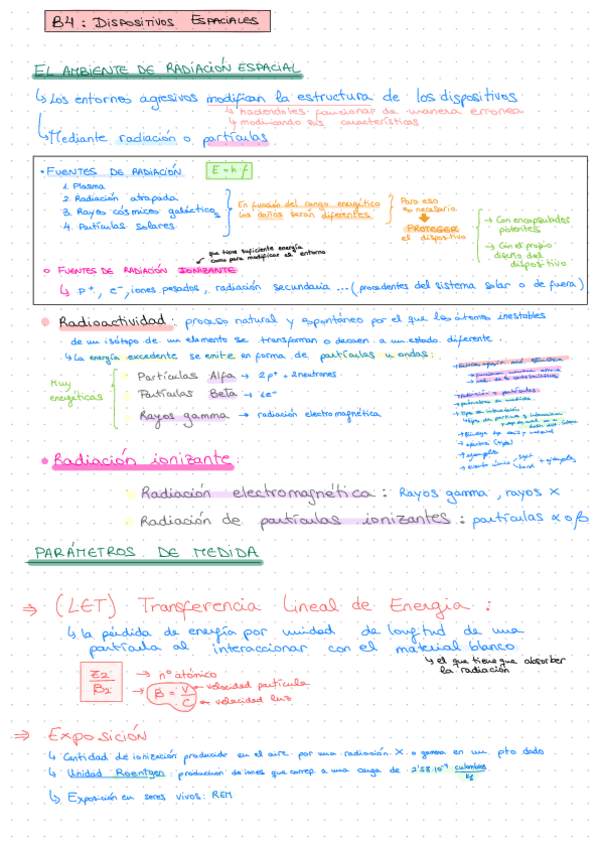 B4: DISPOSITIVOS ESPACIALES
EL AMBIENTE DE RADIACIÓN ESPACIAL
↳ Los entornos agresivos modifican la estructura de los dispositivos
↳ haciendoles funcionar de manera erronea
↳ modificando sus características
↳ Mediante radiación o partículas
• FUENTES DE RADIACIÓN E=h·f
1. Plasma
2. Radiación atrapada
3. Rayos cósmicos galácticos
4. Partículas solares
En función del rango energético los daños serán diferentes
Para eso es necesario
PROTEGER
el dispositivo
→ Con encapsulados potentes
→ Con el propio diseño del dispositivo
que tiene suficiente energía
como para modificar el entorno
o FUENTES DE RADIACIÓN IONIZANTE
↳ p⁺, e⁻, iones pesados, radiación secundaria ... (procedentes del sistema solar o de fuera)
• Radioactividad: proceso natural y espontáneo por el que los átomos inestables
de un isótopo de un elemento se transforman o decaen a un estado diferente.
↳ La energía excedente se emite en forma de partículas u ondas:
Muy energéticas
Partículas Alfa → 2p⁺ + 2neutrones
Partículas Beta → e⁻
Rayos gamma → radiación electromagnética
• Radiación ionizante:
Radiación electromagnética: Rayos gamma, rayos X
Radiación de partículas ionizantes: partículas α o β
PARÁMETROS DE MEDIDA
⇒ (LET) Transferencia Lineal de Energia:
↳ la pérdida de energía por unidad de longitud de una
partícula al interaccionar con el material blanco
↳ el que tiene que absorber
la radiación
Z2 → nº atómico
B2 → B = V/C
velocidad partícula
velocidad luz
⇒ Exposición
↳ Cantidad de ionización producida en el aire por una radiación X o gamma en un pto dado
↳ Unidad Roentgen: produccion de iones que corresp. a una carga de 2'58·10⁻⁴ culombios/kg
↳ Exposición en seres vivos: REM